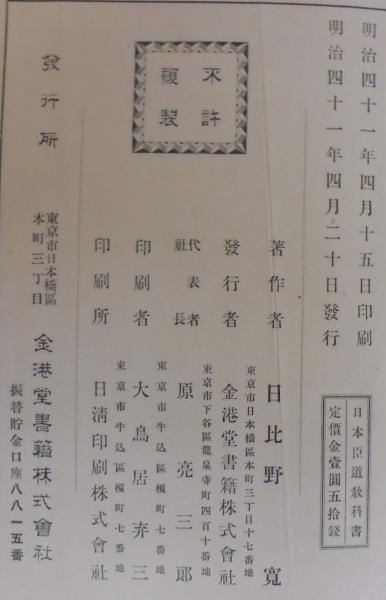 明治四十一年四月十五日印刷
明治四十一年四月二十日發行
日本臣道敎科書
定價金壹圓五拾錢
不許
複製
著作者 日比野寬
東京市日本橋區本町三丁目十七番地
發行者 金港堂書籍株式會社
東京市下谷區龍泉寺町四百十番地
代表者
社長
原亮三郎
東京市牛込區榎町七番地
印刷者 大鳥居弃三
東京市牛込區榎町七番地
印刷所 日淸印刷株式會社
發行所
東京市日本橋區
本町三丁目
金港堂書籍株式會社
振替貯金口座八八一五番